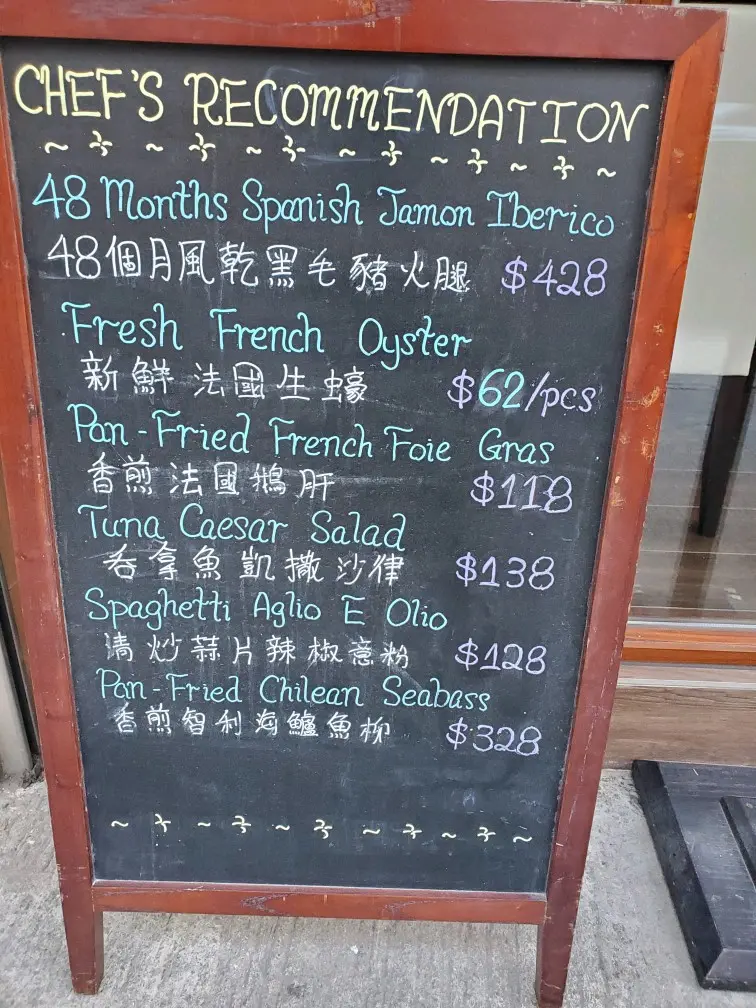 CHEF'S RECOMMENDATION
48 Months Spanish Jamon Iberico
48個月風乾黑毛豬火腿 $428
Fresh French Oyster
新鮮法國生蠔 $62/pcs
Pan-Fried French Foie Gras
香煎法國鵝肝 $118
Tuna Caesar Salad
吞拿魚凱撒沙律 $138
Spaghetti Aglio E Olio
清炒蒜片辣椒意粉 $128
Pan-Fried Chilean Seabass
香煎智利海鱸魚柳 $328